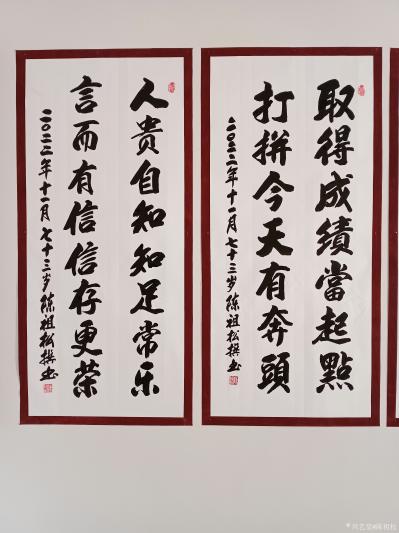 取得成绩當起點
打拼今天有奔頭
二〇二二年十一月七十三岁陈祖松撰书
人贵自知知足常乐
言而有信信存更荣
二〇二二年十一月七十三岁陈祖松撰书